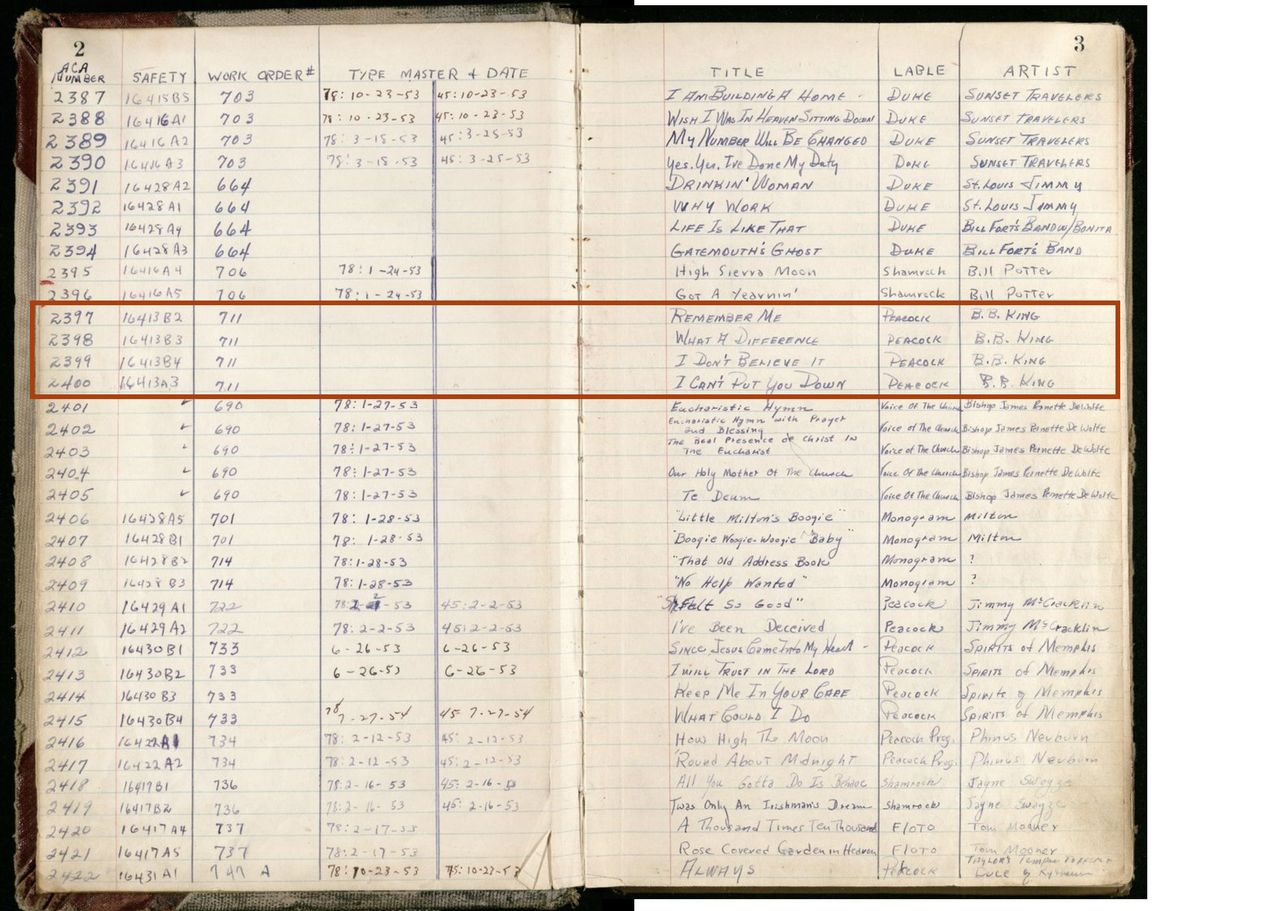 2 3
ACA NUMBER SAFETY WORK ORDER# TYPE MASTER & DATE TITLE LABLE ARTIST
2387 16415B5 703 78: 10-23-53 45: 10-23-53 I AM BUILDING A HOME - DUKE SUNSET TRAVELERS
2388 16416A1 703 78: 10-23-53 45: 10-23-53 WISH I WAS IN HEAVEN SITTING DOWN DUKE SUNSET TRAVELERS
2389 16416A2 703 78: 3-18-53 45: 3-25-53 MY NUMBER WILL BE CHANGED DUKE SUNSET TRAVELERS
2390 16416A3 703 78: 3-18-53 45: 3-25-53 Yes, Yes, I've Done My Duty DUKE SUNSET TRAVELERS
2391 16428A2 664 DRINKIN' WOMAN DUKE St. Louis JIMMY
2392 16428A1 664 WHY WORK DUKE St. Louis JIMMY
2393 16428A4 664 LIFE IS LIKE THAT DUKE BILL FORT'S BAND W/BONITA
2394 16428A3 664 GATEMOUTH'S GHOST DUKE BILL FORT'S BAND
2395 16416A4 706 78: 1-24-53 High Sierra Moon Shamrock Bill Potter
2396 16416A5 706 78: 1-24-53 Got A Yearnin' Shamrock Bill Potter
2397 16413B2 711 REMEMBER ME PEACOCK B.B. KING
2398 16413B3 711 WHAT A DIFFERENCE PEACOCK B.B. KING
2399 16413B4 711 I DON'T BELIEVE IT PEACOCK B.B. KING
2400 16413A3 711 I CAN'T PUT YOU DOWN PEACOCK B.B. KING
2401 ✓ 690 78: 1-27-53 Eucharistic Hymn Voice Of The Church Bishop James Pernette DeWolfe
2402 ✓ 690 78: 1-27-53 Eucharistic Hymn with Prayer and Blessing Voice Of The Church Bishop James Pernette DeWolfe
2403 ✓ 690 78: 1-27-53 The Real Presence of Christ In The Eucharist Voice Of The Church Bishop James Pernette DeWolfe
2404 ✓ 690 78: 1-27-53 Our Holy Mother Of The Church Voice Of The Church Bishop James Pernette DeWolfe
2405 ✓ 690 78: 1-27-53 Te Deum Voice Of The Church Bishop James Pernette DeWolfe
2406 16428A5 701 78: 1-28-53 "Little Milton's Boogie" Monogram Milton
2407 16428B1 701 78: 1-28-53 "Boogie Woogie-Woogie Baby" Monogram Milton
2408 16428B2 714 78: 1-28-53 "That Old Address Book" Monogram ?
2409 16428B3 714 78: 1-28-53 "No Help Wanted" Monogram ?
2410 16429A1 722 78: 2-2-53 45: 2-2-53 Felt So Good" Peacock Jimmy McCracklin
2411 16429A2 722 78: 2-2-53 45: 2-2-53 I've Been Deceived Peacock Jimmy McCracklin
2412 16430B1 733 6-26-53 6-26-53 SINCE JESUS CAME INTO MY HEART - PEACOCK SPIRITS of Memphis
2413 16430B2 733 6-26-53 6-26-53 I WILL TRUST IN THE LORD PEACOCK SPIRITS of Memphis
2414 16430B3 733 KEEP ME IN YOUR CARE PEACOCK SPIRITS of Memphis
2415 16430B4 733 78 7-27-54 45 7-27-54 WHAT COULD I DO PEACOCK SPIRITS of Memphis
2416 16422A1 734 78: 2-12-53 45: 2-12-53 How High The Moon Peacock Prog. Phinus Newburn
2417 16422A2 734 78: 2-12-53 45: 2-12-53 'Round About Midnight Peacock Prog. Phinus Newburn
2418 16417B1 736 78: 2-16-53 45: 2-16-53 All You Gotta Do Is Behave Shamrock Jayne Swayze
2419 16417B2 736 78: 2-16-53 45: 2-16-53 Twas Only An Irishman's Dream Shamrock Jayne Swayze
2420 16417A4 737 78: 2-17-53 A Thousand Times Ten Thousand FLOTO Tom Mooner
2421 16417A5 737 78: 2-17-53 Rose Covered Garden in Heaven FLOTO Tom Mooner
2422 16431A1 747 A 78: 10-23-53 45: 10-23-53 ALWAYS Peacock